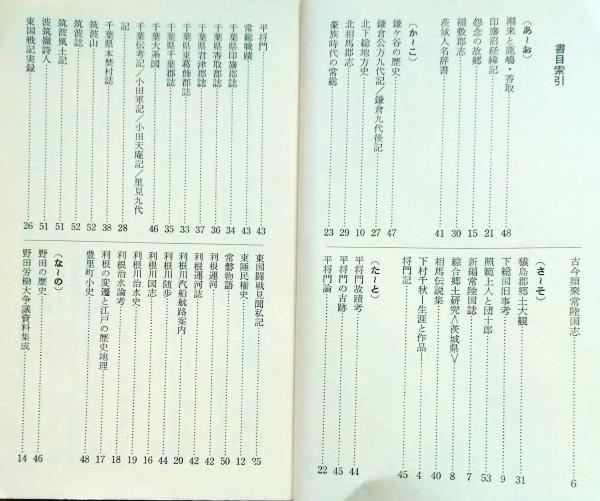 書目索引
(あ～お)
潮来と鹿嶋・香取……48
印旛沼経緯記……21
怨念の故郷……15
稲敷郡志……30
茨城人名辞書……41
(か～こ)
鎌ケ谷の歴史……47
鎌倉公方九代記／鎌倉九代後記……27
北下総地方史……10
北相馬郡志……29
豪族時代の常総……23
古今類聚常陸国志……6
(さ～そ)
猿島郡郷土大観……31
下総国旧事考……9
照範上人と団十郎……53
新編常陸国誌……7
綜合郷土研究〈茨城県〉……8
相馬伝説集……40
下村千秋―生涯と作品―……4
将門記……45
(た～と)
平将門故蹟考……44
平将門の古跡……45
平将門論……22
平将門……43
常総戦蹟……43
千葉県印旛郡誌……34
千葉県香取郡誌……36
千葉県君津郡誌……37
千葉県東葛飾郡誌……33
千葉県千葉郡誌……35
千葉大系図……46
千葉伝考記／小田軍記／小田天庵記／里見九代
記……28
千葉県本埜村誌……38
筑波山……52
筑波誌……52
筑波風土記……51
波筑嶺詩人……51
東国戦記実録……26
東国闘戦見聞私記……25
東陲民権史……12
常磐物語……50
利根運河誌……42
利根運河……42
利根川汽船航路案内……20
利根川随歩……44
利根川図志……16
利根川治水史……19
利根治水論考……18
利根の変遷と江戸の歴史地理……17
豊里町小史……48
(な～の)
野田の歴史……46
野田労働大争議資料集成……14